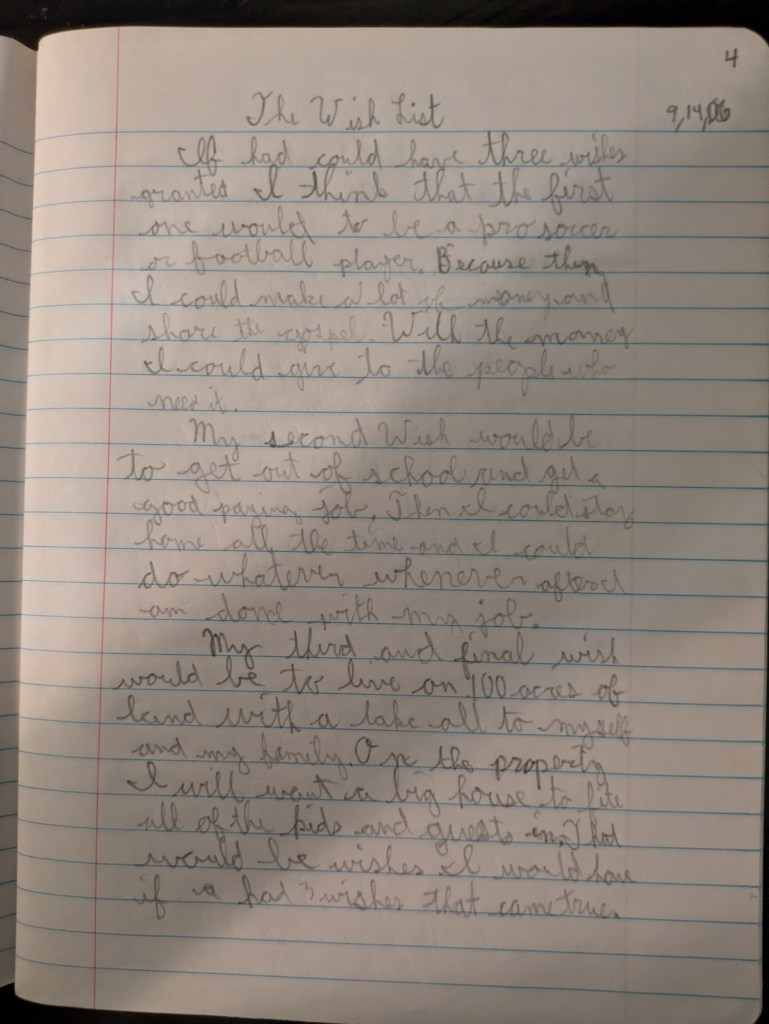 4
The Wish List
9,14,06
If had could have three wishes
granted I think that the first
one would to be a pro soccer
or football player. Because then
I could make a lot of money and
share the gospel. With the money
I could give to the people who
need it.
My second Wish would be
to get out of school and get a
good paying job. Then I could stay
home all the time and I could
do whatever whenever after I
am done with my job.
My third and final wish
would be to live on 100 acres of
land with a lake all to myself
and my family. On the property
I will want a big house to fite
all of the kids and guests in. That
would be wishes I would have
if a had 3 wishes that came true.